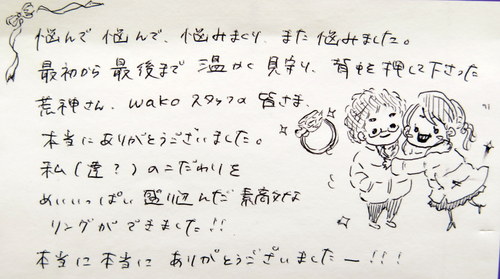 悩んで 悩んで、悩みまくり、また 悩みました。
最初から 最後まで 温かく 見守り、背中を 押して下さった
荒神さん、wako スタッフの 皆さま、
本当に ありがとうございました。
私(達?)の こだわりを
めいいっぱい 盛り込んだ 素敵な
リングが できました!!
本当に 本当に ありがとうございましたー!!!